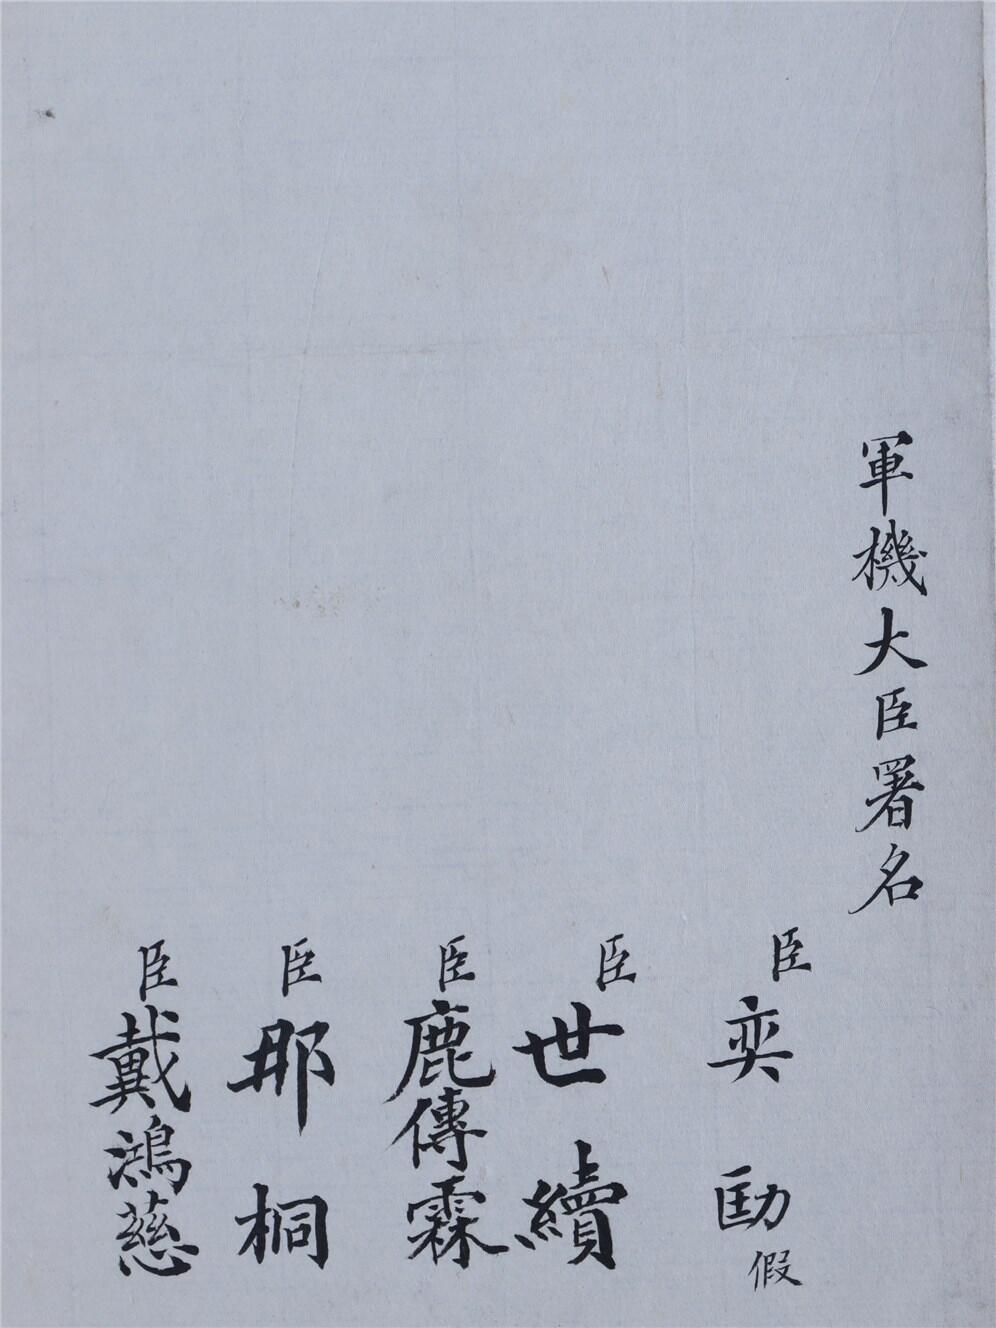 軍機大臣署名
臣奕劻假
臣世續
臣鹿傳霖
臣那桐
臣戴鴻慈